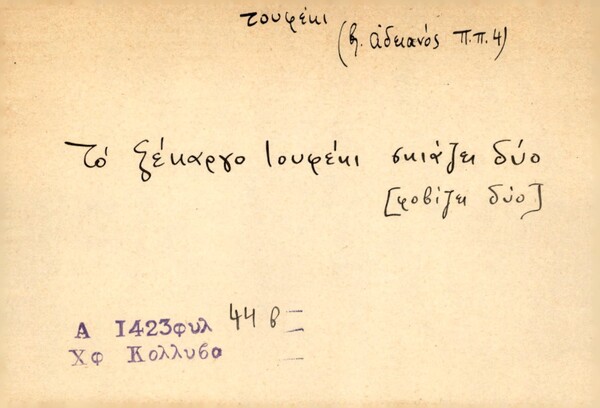 τουφέκι
(β. ἀδειανός π.π. 4)
Τό ξέκαργο τουφέκι σκιάζει δύο
[φοβίζει δύο]
Α 1423φυλ 44 β
Χφ Κολλυβα